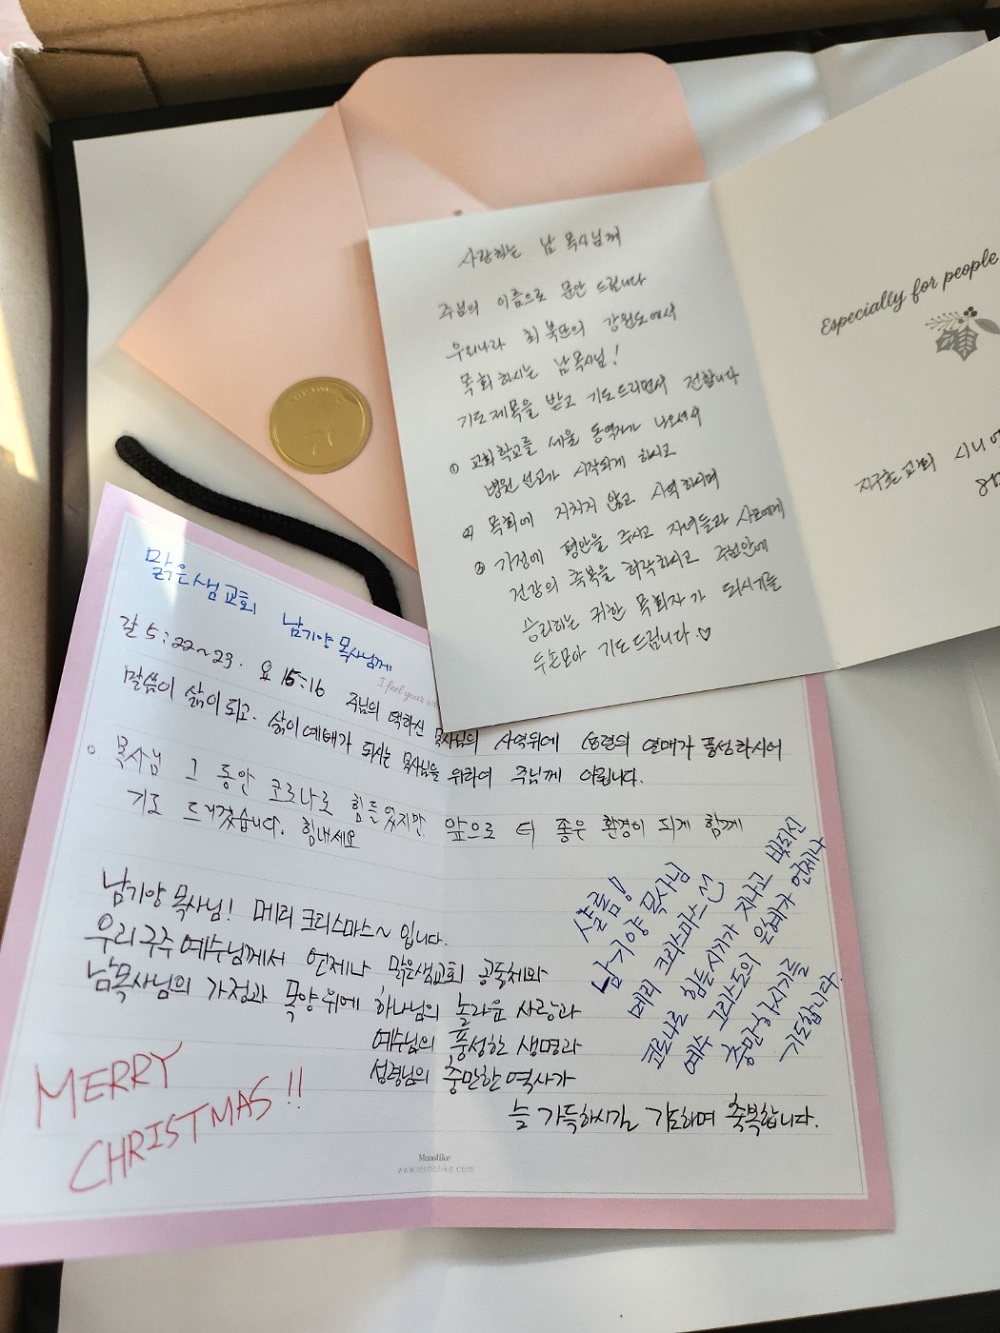 사랑하는 남 목사님께
주님의 이름으로 문안 드립니다
우리나라 최 북단의 강원도에서
목회하시는 남목사님!
기도제목을 받고 기도드리면서 전합니다
① 교회학교를 세울 동역자가 나오셔서
병원선교가 시작되게 하시고
② 목회에 지치지 않고 사역하시며
③ 가정에 평안을 주시고 자녀들과 사모에게
건강의 축복을 허락하시고 주현안에
승리하는 귀한 목회자가 되시기를
두손모아 기도드립니다.♡
Especially for people
지구촌교회 시니어
맑은샘교회 남기양 목사님께
갈 5:22~23. 요 15:16 주님의 택하신 목사님의 사역위에 성령의 열매가 풍성하시어
I feel your
말씀이 삶이 되고. 삶이 예배가 되시는 목사님을 위하여 주님께 아룁니다.
○ 목사님 그 동안 코로나로 힘들었지만 앞으로 더 좋은 환경이 되게 함께
기도 드리겠습니다. 힘내세요
남기양 목사님! 메리 크리스마스~ 입니다.
우리 구주 예수님께서 언제나 맑은샘교회 공동체와
남목사님의 가정과 목양위에 하나님의 놀라운 사랑과
예수님의 풍성한 생명과
성령님의 충만한 역사가
늘 가득하시길 기도하며 축복합니다.
샬롬!
남기양 목사님
메리 크리스마스
코로나로 힘든시기가 지나고 빛되신
예수 그리스도의 은혜가 언제나
충만하시기를
기도합니다.
MERRY
CHRISTMAS!!
Monolike
www.monolike.com